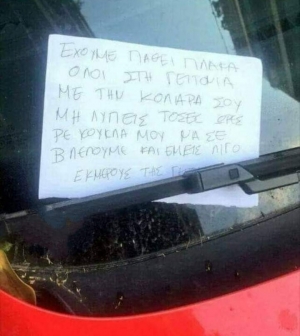 ΕΧΟΥΜΕ ΠΑΘΕΙ ΠΛΑΚΑ
ΟΛΟΙ ΣΤΗ ΓΕΙΤΟΝΙΑ
ΜΕ ΤΗΝ ΚΩΛΑΡΑ ΣΟΥ
ΜΗ ΛΥΠΕΙΣ ΤΟΣΕΣ ΩΡΕΣ
ΡΕ ΚΟΥΚΛΑ ΜΟΥ ΝΑ ΣΕ
ΒΛΕΠΟΥΜΕ ΚΑΙ ΕΜΕΙΣ ΛΙΓΟ.
ΕΚ ΜΕΡΟΥΣ ΤΗΣ